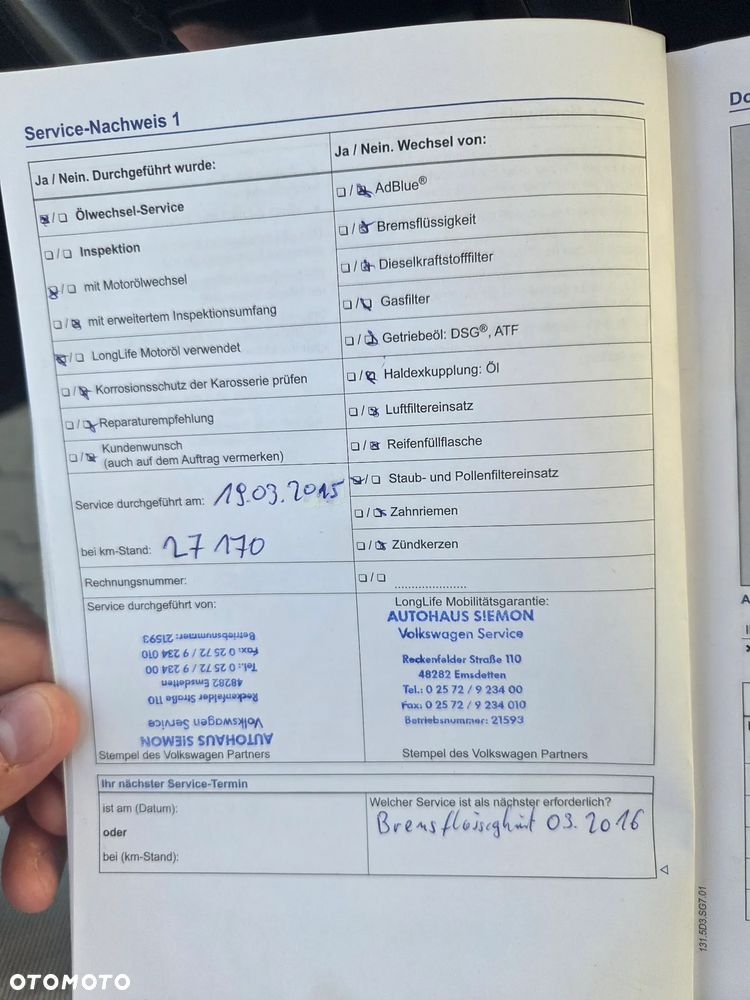 Service-Nachweis 1
Ja / Nein. Durchgeführt wurde:
☒/☐ Ölwechsel-Service
☐/☐ Inspektion
☒/☐ mit Motorölwechsel
☐/☒ mit erweitertem Inspektionsumfang
☒/☐ LongLife Motoröl verwendet
☐/☒ Korrosionsschutz der Karosserie prüfen
☐/☒ Reparaturempfehlung
☐/☒ Kundenwunsch
(auch auf dem Auftrag vermerken)
Service durchgeführt am: 19.03.2015
bei km-Stand: 27 170
Rechnungsnummer:
Service durchgeführt von:
AUTOHAUS SIEMON
Volkswagen Service
Reckenfelder Straße 110
48282 Emsdetten
Tel.: 0 25 72 / 9 234 00
Fax: 0 25 72 / 9 234 010
Betriebsnummer: 21593
Stempel des Volkswagen Partners
Ja / Nein. Wechsel von:
☐/☒ AdBlue®
☐/☒ Bremsflüssigkeit
☐/☒ Dieselkraftstofffilter
☐/☒ Gasfilter
☐/☒ Getriebeöl: DSG®, ATF
☐/☒ Haldexkupplung: Öl
☐/☒ Luftfiltereinsatz
☐/☒ Reifenfüllflasche
☒/☐ Staub- und Pollenfiltereinsatz
☐/☒ Zahnriemen
☐/☒ Zündkerzen
☐/☐ ....................
LongLife Mobilitätsgarantie:
AUTOHAUS SIEMON
Volkswagen Service
Reckenfelder Straße 110
48282 Emsdetten
Tel.: 0 25 72 / 9 234 00
Fax: 0 25 72 / 9 234 010
Betriebsnummer: 21593
Stempel des Volkswagen Partners
Ihr nächster Service-Termin
ist am (Datum):
oder
bei (km-Stand):
Welcher Service ist als nächster erforderlich?
03.2016
131.5D3.SG7.01
Do
OTOMOTO